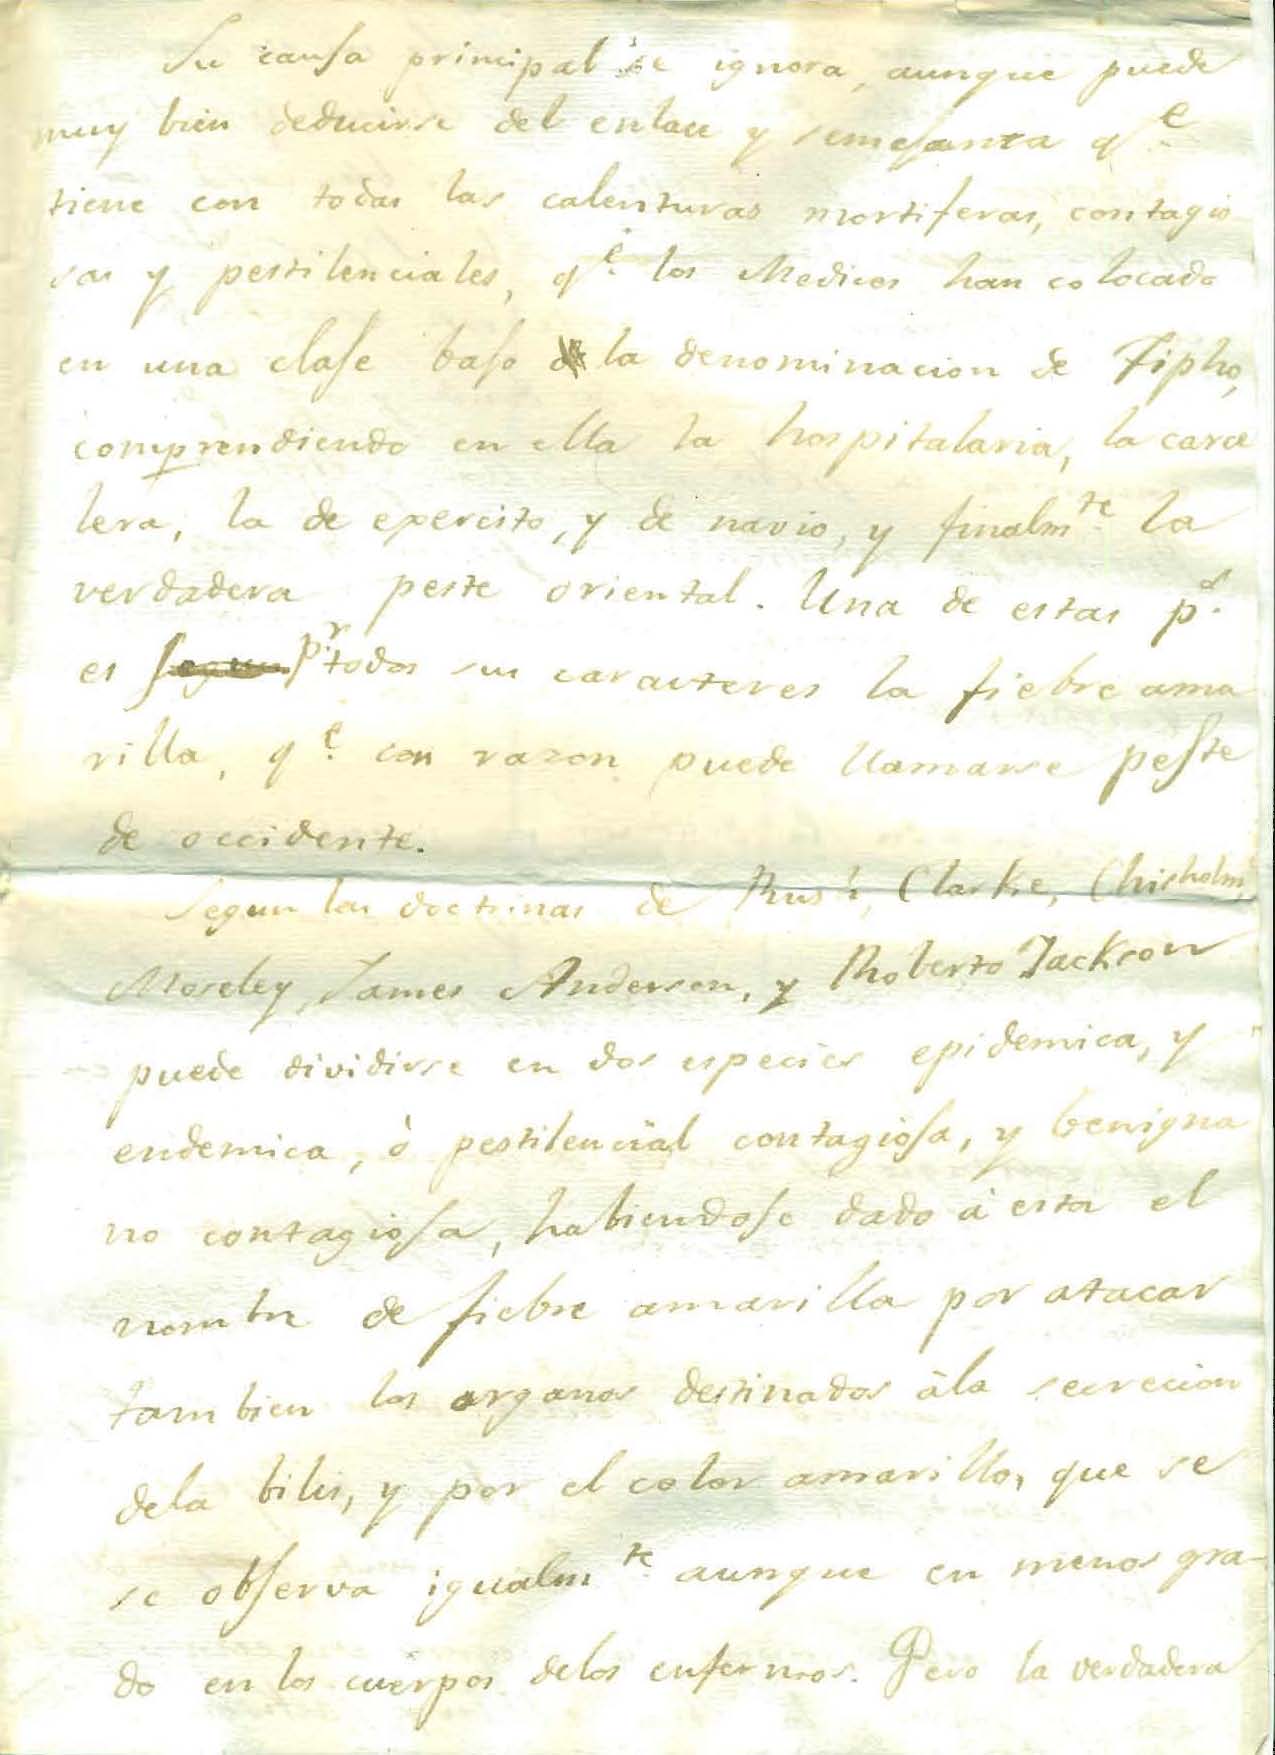 Su causa principal se ignora, aunque puede
muy bien deducirse del enlace y semejanza q.e
tiene con todas las calenturas mortiferas, contagio
sas y pestilenciales, q.e los Medicos han colocado
en una clase bajo la denominacion de Tipho,
comprendiendo en ella la hospitalaria, la carce
lera, la de exercito, y de navio, y finalm.te la
verdadera peste oriental. Una de estas p.s
es segun p.r todos sus caracteres la fiebre ama
rilla, q.e con razon puede llamarse peste
de occidente.
Segun las doctrinas de Rush, Clarke, Chisholm,
Moseley, James Anderson, y Roberto Jackson
puede dividirse en dos especies epidemica, y
endemica, ò pestilencial contagiosa, y benigna
no contagiosa, habiendose dado à esta el
nombre de fiebre amarilla por atacar
tambien los organos destinados àla secrecion
dela bilis, y por el color amarillo, que se
se observa igualm.te aunque en menos gra-
do en los cuerpos delos enfermos. Pero la verdadera